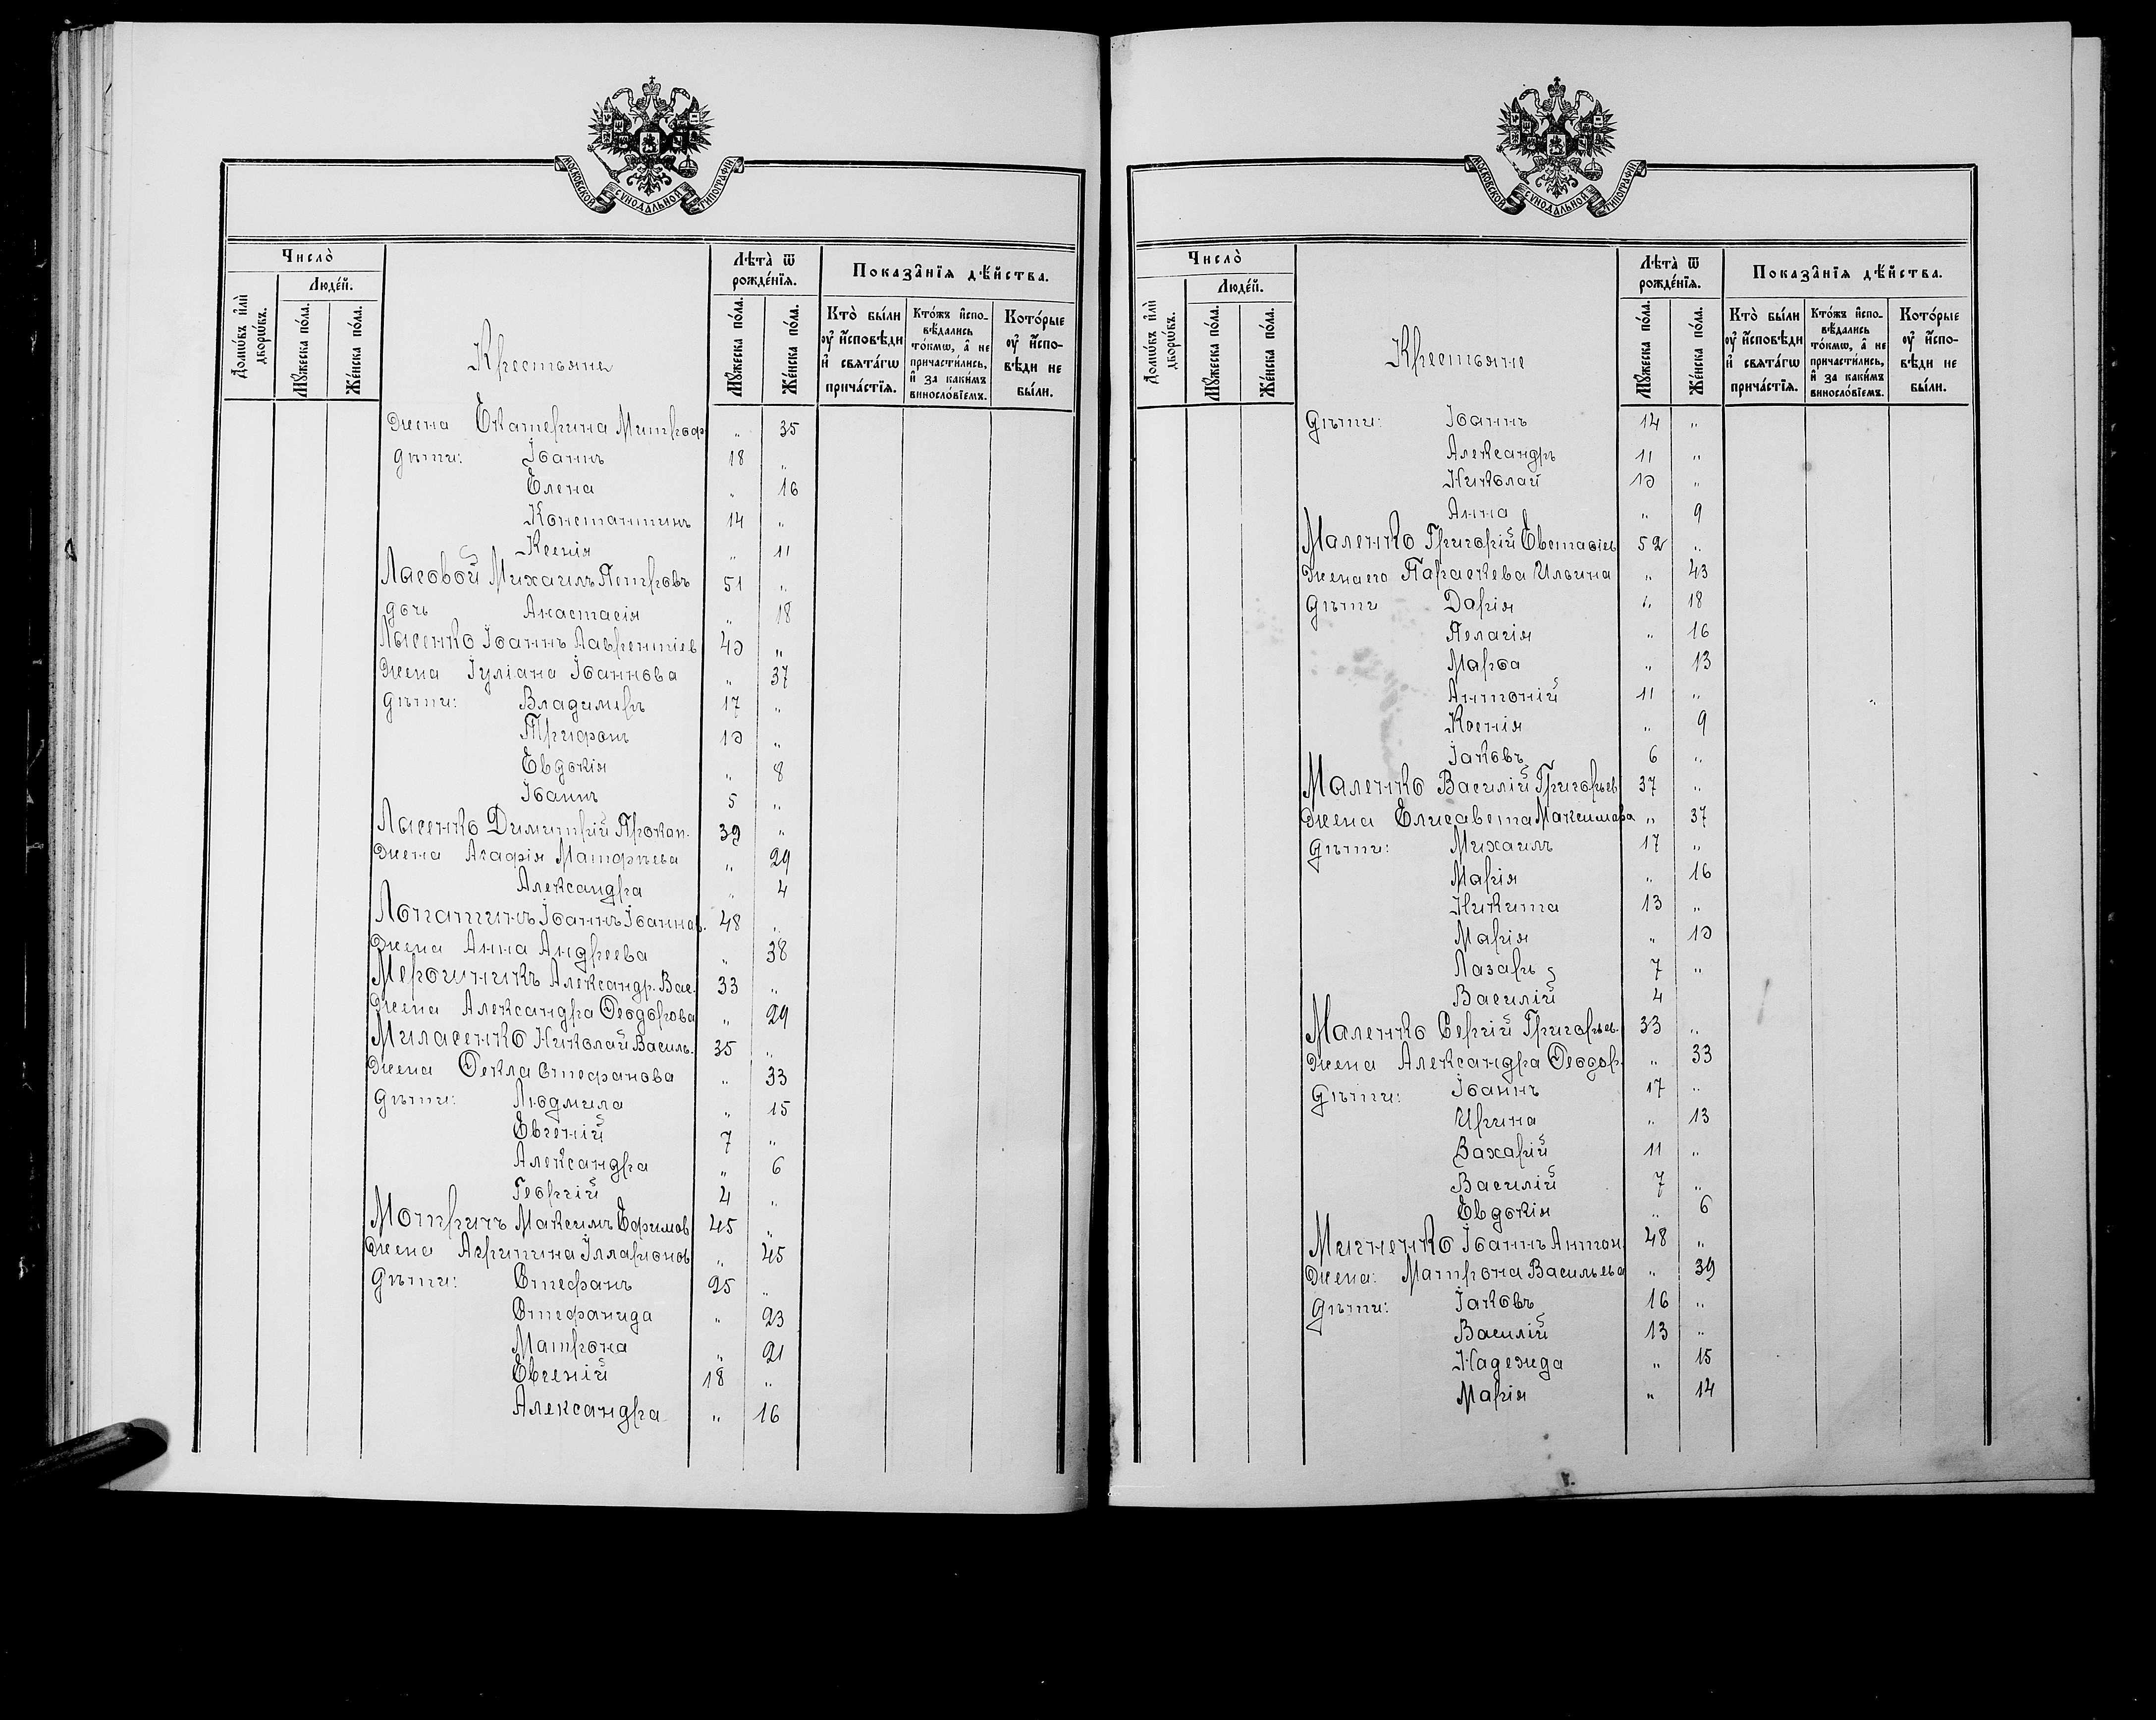 МОСКОВСКОЙ СѴНОДАЛЬНОЙ ТИПОГРАФІИ
Число̀
Людéй.
Домѡ́въ и҆лѝ дворѡ́въ.
Мꙋ́жеска по́ла.
Же́нска по́ла.
Крестьяне
Лѣта̀ ѿ рожде́нїѧ.
Мꙋ́жеска по́ла.
Же́нска по́ла.
Показа̑нїѧ дѣ́йства.
Кто̀ бы́ли оу҆ и҆сповѣди и҆ свѧта́гѡ прича́стїѧ.
Кто́жъ и҆спо-вѣдались то́кмѡ, а҆ не причасти́лись, и҆ за каки́мъ винословїемъ.
Кото́рые оу҆ и҆спо-вѣди не бы́ли.
Жена Екатерина Митроф „ 35
Дѣти: Іоаннъ 18 „
Елена „ 16
Константинъ 14 „
Ксенія „ 11
Ласовой Михаилъ Петровъ 51 „
дочь Анастасія „ 18
Лысенко Іоаннъ Лаврентіев 40 „
Жена Іуліана Іоаннова „ 37
Дѣти: Владимиръ 17 „
Трифонъ 10 „
Евдокія „ 8
Іоаннъ 5 „
Ласенко Димитрій Прокоп. 39 „
Жена Агафія Матфѣева „ 29
Александра „ 4
Лопатинъ Іоаннъ Іоаннов. 48 „
Жена Анна Андреева „ 38
Мерошникъ Александр. Вас. 33 „
Жена Александра Ѳеодорова „ 29
Миласенко Николай Василь. 35 „
Жена Ѳекла Стефанова „ 33
Дѣти: Людмила „ 15
Евгеній 7 „
Александра „ 6
Георгій 4 „
Мотричъ Максимъ Ефимов 45 „
Жена Агрипина Илларіонов „ 45
Дѣти: Стефанъ 25 „
Стефанида „ 23
Матрона „ 21
Евгеній 18 „
Александра „ 16
МОСКОВСКОЙ СѴНОДАЛЬНОЙ ТИПОГРАФІИ
Число̀
Людéй.
Домѡ́въ и҆лѝ дворѡ́въ.
Мꙋ́жеска по́ла.
Же́нска по́ла.
Крестьяне
Лѣта̀ ѿ рожде́нїѧ.
Мꙋ́жеска по́ла.
Же́нска по́ла.
Показа̑нїѧ дѣ́йства.
Кто̀ бы́ли оу҆ и҆сповѣди и҆ свѧта́гѡ прича́стїѧ.
Кто́жъ и҆спо-вѣдались то́кмѡ, а҆ не причасти́лись, и҆ за каки́мъ винословїемъ.
Кото́рые оу҆ и҆спо-вѣди не бы́ли.
Дѣти: Іоаннъ 14 „
Александръ 11 „
Николай 10 „
Анна „ 9
Маленко Григорій Евстафіев 52 „
Жена его Параскева Ильина „ 43
Дѣти Дарія „ 18
Пелагія „ 16
Марѳа „ 13
Антоній 11 „
Ксенія „ 9
Іаковъ 6 „
Маленко Василій Григорьев 37 „
Жена Елисавета Максимова „ 37
Дѣти: Михаилъ 17 „
Марія „ 16
Никита 13 „
Марія „ 10
Лазарь 7 „
Василій 4
Маленко Сергій Григорьев. 33 „
Жена Александра Ѳеодор. „ 33
Дѣти: Іоаннъ 17 „
Ирина „ 13
Захарій 11 „
Василій 7 „
Евдокія „ 6
Мигненко Іоаннъ Антон. 48 „
Жена: Матрона Васильева „ 39
Дѣти: Іаковъ 16 „
Василій 13 „
Надежда „ 15
Марія „ 14